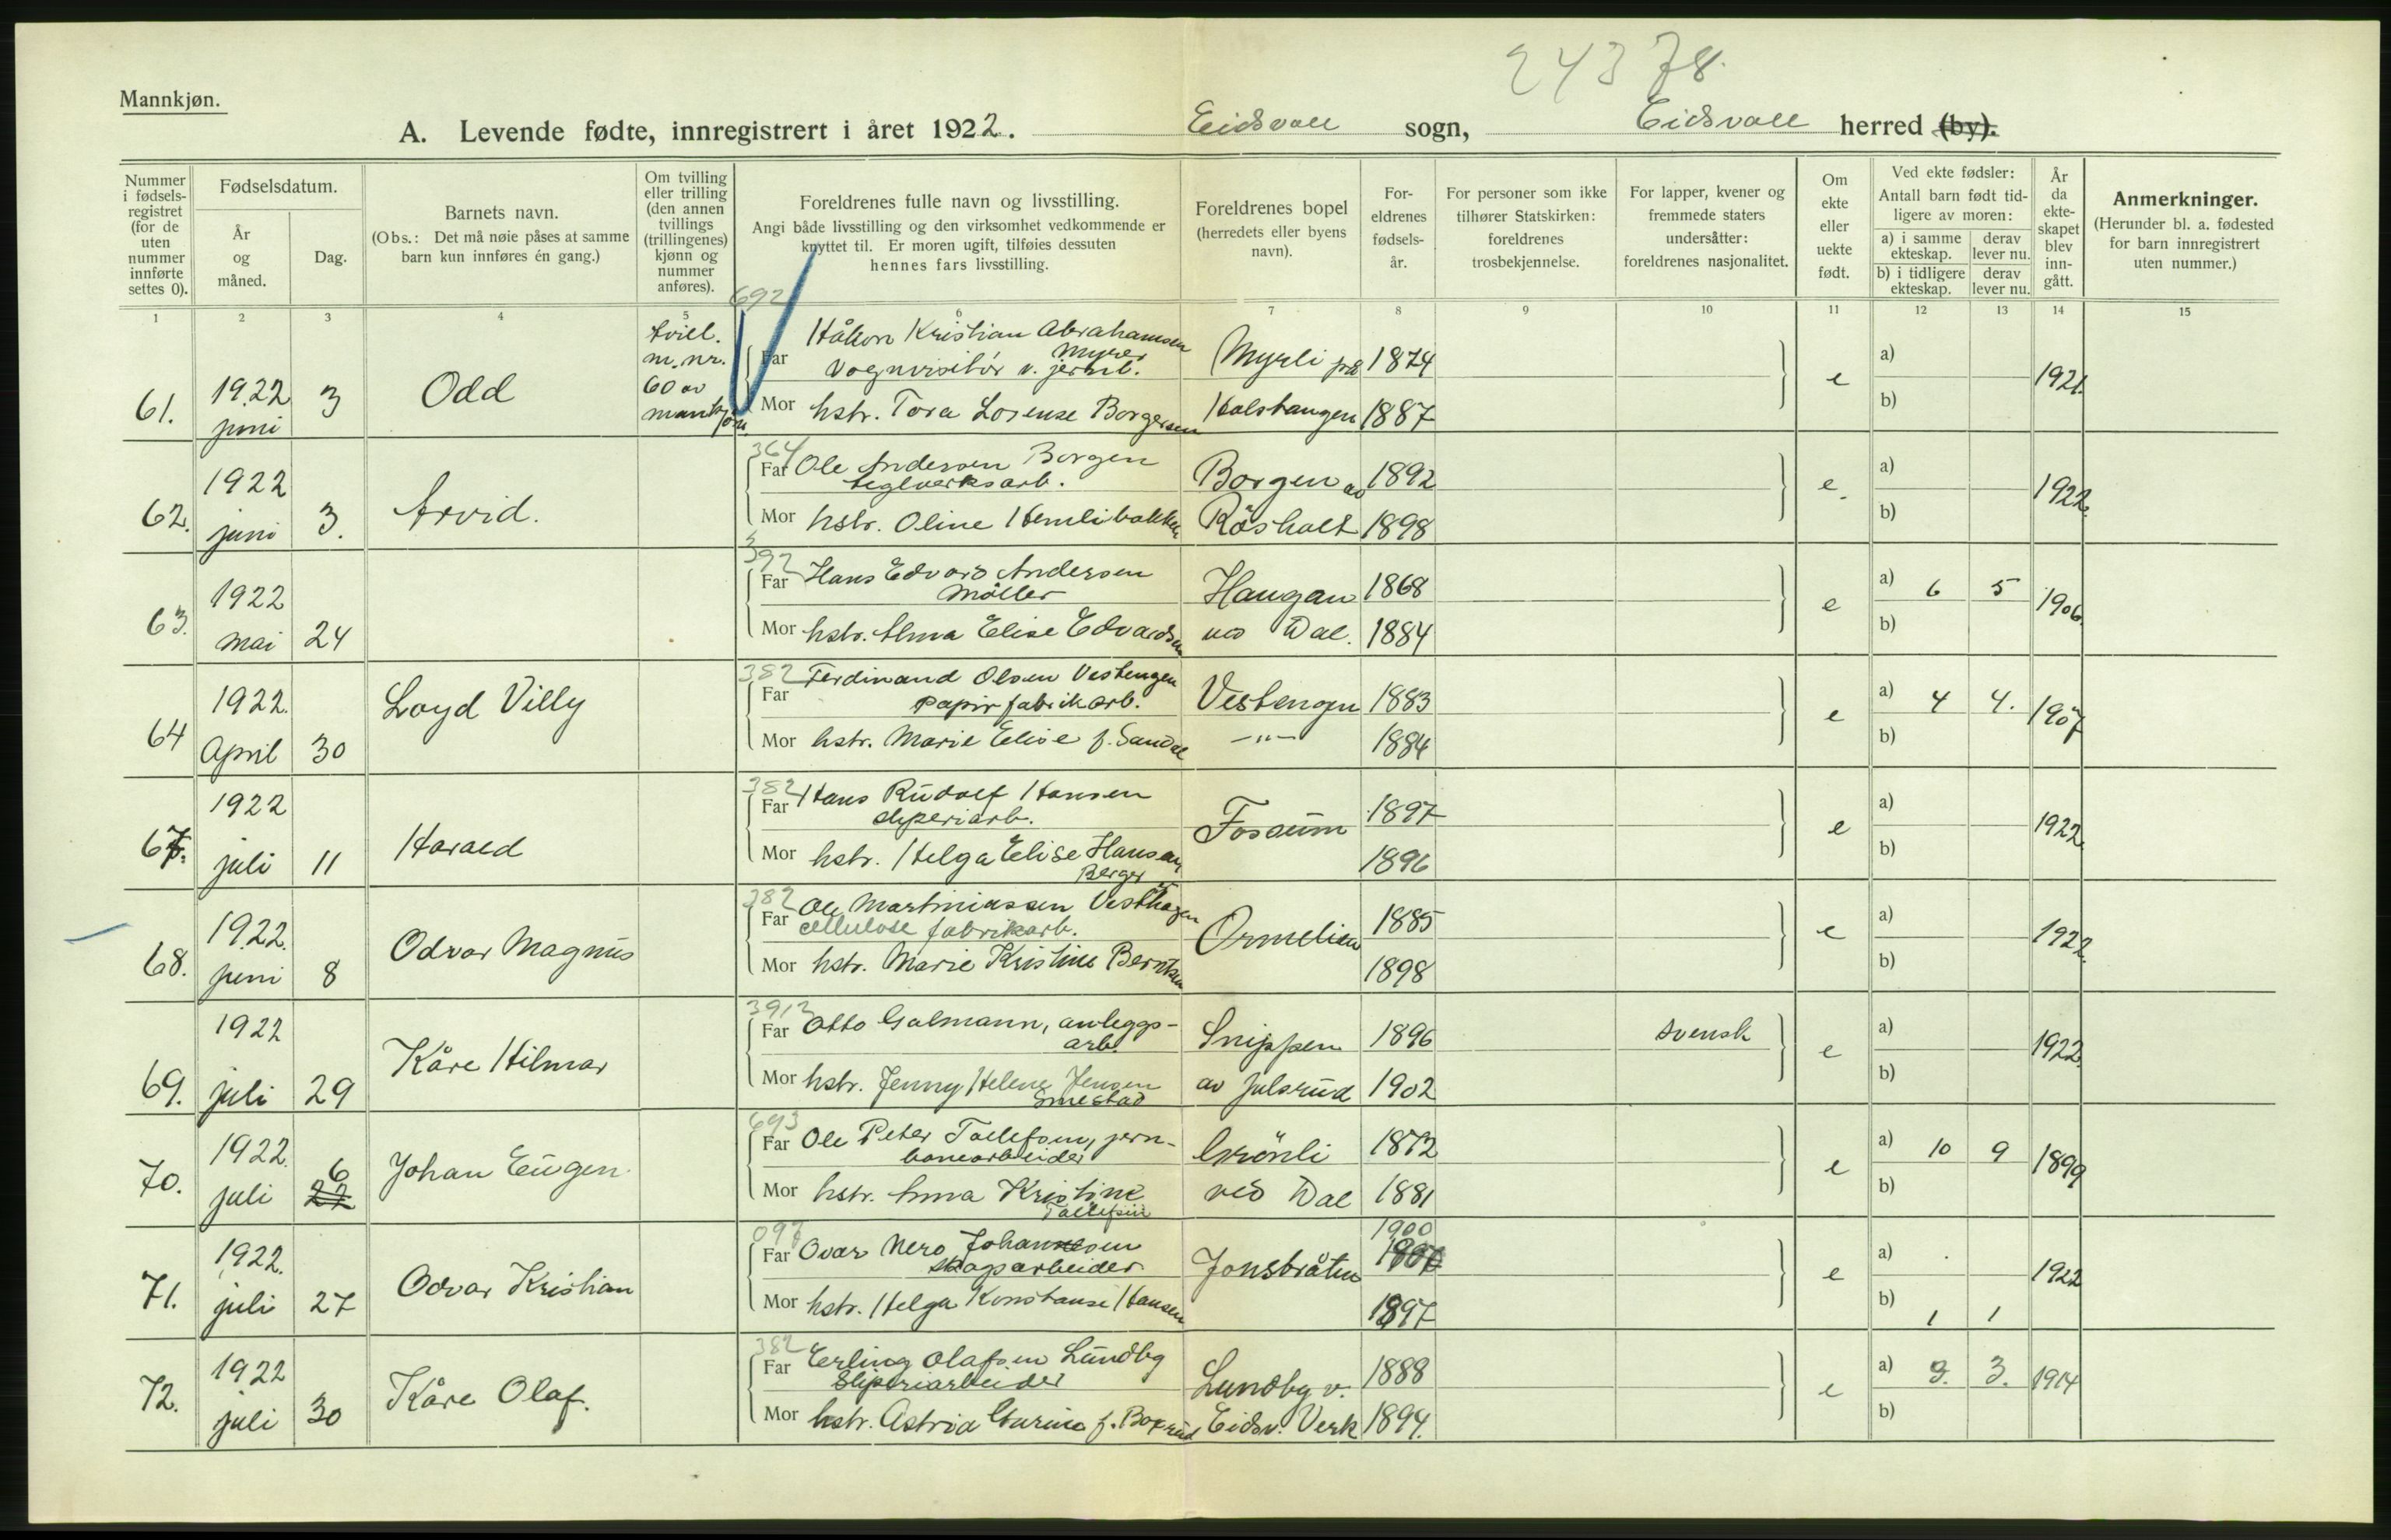 24378.
Mannkjøn.
A. Levende fødte, innregistrert i året 1922. Eidsvoll sogn, Eidsvoll herred (by).
Nummer i fødsels-registret (for de uten nummer innførte settes 0).
Fødselsdatum.
År og måned.
Dag.
Barnets navn.
(Obs.: Det må nøie påses at samme barn kun innføres én gang.)
Om tvilling eller trilling (den annen tvillings (trillingenes) kjønn og nummer anføres).
Foreldrenes fulle navn og livsstilling.
Angi både livsstilling og den virksomhet vedkommende er knyttet til. Er moren ugift, tilføies dessuten hennes fars livsstilling.
Foreldrenes bopel (herredets eller byens navn).
For-eldrenes fødsels-år.
For personer som ikke tilhører Statskirken: foreldrenes trosbekjennelse.
For lapper, kvener og fremmede staters undersåtter: foreldrenes nasjonalitet.
Om ekte eller uekte født.
Ved ekte fødsler: Antall barn født tid-ligere av moren:
a) i samme ekteskap. derav lever nu.
b) i tidligere ekteskap. derav lever nu.
År da ekte-skapet blev inn-gått.
Anmerkninger.
(Herunder bl. a. fødested for barn innregistrert uten nummer.)
1 2 3 4 5 6 7 8 9 10 11 12 13 14 15
61. 1922 juni 3 Odd tvill. m. nr. 60 av mankjøn.
692
Far Håkon Kristian Abrahamsen Myrer Vognvisitør v. jernb. Myrli på 1874 e a) 1921.
Mor hstr. Tora Lorense Borgersen Halshaugen 1887 b)
62. 1922 juni 3. Arvid.
364
Far Ole Andersen Borgen teglverksarb. Borgen av 1892 e. a) 1922.
Mor hstr. Oline Hemlibakken Råsholt 1898 b)
63. 1922 mai 24
392
Far Hans Edvard Andersen Møller Haugan 1868 e a) 6 5 1906.
Mor hstr. Alma Elise Edvardsen ved Dal. 1884 b)
64 1922. April 30 Loyd Villy
382
Far Ferdinand Olsen Vestengen papirfabrikarb. Vestengen 1883 e a) 4 4. 1907
Mor hstr. Marie Elise f. Sandal -"- 1884 b)
67. 1922 juli 11 Harald
382
Far Hans Rudolf Hansen sliperiarb. Fossum 1897 e a) 1922.
Mor hstr. Helga Elise Hansen Berger 1896 b)
68. 1922. juni 8 Odvar Magnus
382
Far Ole Martiniussen Vesthagen cellulose fabrikarb. Ormelien 1885 e a) 1922.
Mor hstr. Marie Kristine Berntsen 1898 b)
69. 1922 juli 29 Kåre Hilmar
3912
Far Otto Galmann, anleggs-arb. Snippen 1896 svensk e a) 1922.
Mor hstr. Jenny Helene Jensen Smestad av Julsrud 1902 b)
70. 1922. juli 6 22 Johan Eugen.
693
Far Ole Peter Tollefsen, jern-banearbeider Grønli 1872 e a) 10 9 1899
Mor hstr. Anna Kristine Tollefsen ved Dal 1881 b)
71. 1922. juli 27 Odvar Kristian
097
Far Ovar Nero Johannesen skogsarbeider Jonsbråten 1900 e a) 1922
Mor hstr. Helga Konstanse Hansen 1897 b) 1 1
72. 1922 juli 30 Kåre Olaf.
382
Far Erling Olafsen Lundby Sliperiarbeider Lundby v. 1888 e a) 3. 3. 1914
Mor hstr. Astrid Gurine f. Boxrud Eidsv. Verk 1894. b)